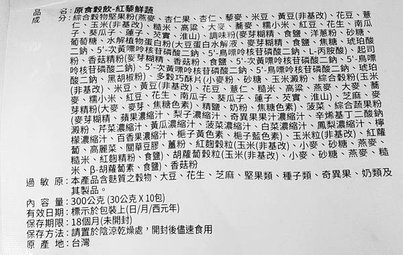 品名:原食穀飲-紅藜鮮蔬
成分:綜合穀物堅果粉(燕麥、杏仁果、杏仁、藜麥、米豆、黃豆(非基改)、花豆、薏仁、玉米(非基改)、糙米、高粱、大麥、蕎麥、糯小米、紅豆、花生、南瓜子、葵瓜子、蓮子、芝麻、淮山)、調味粉(麥芽糊精、食鹽、洋蔥粉、砂糖、葡萄糖、水解植物蛋白粉(大豆蛋白水解液、麥芽糊精、食鹽、焦糖、琥珀酸二鈉、5'-次黃嘌呤核苷磷酸二鈉、5'-鳥嘌呤核苷磷酸二鈉、L-丙胺酸)、起司粉、香菇粉、5'-次黃嘌呤核苷磷酸二鈉、5'-鳥嘌呤核苷磷酸二鈉、琥珀酸二鈉、黑胡椒粉)、多穀巧酥(小麥、砂糖、玉米澱粉)、綜合穀粉(玉米(非基改)、米豆、黃豆(非基改)、花豆、薏仁、糙米、高粱、燕麥、大麥、蕎麥、糯小米、紅豆、花生、南瓜子、葵瓜子、蓮子、芝麻、淮山)、燕麥、麥芽精粉(大麥、麥芽、焦糖色素)、精鹽、奶粉、焦糖色素)、菠菜、綜合蔬果粉(麥芽糊精、蘋果濃縮汁、梨子濃縮汁、奇異果果汁濃縮汁、辛烯基丁二酸鈉澱粉、芹菜濃縮汁、黃瓜濃縮汁、菠菜濃縮汁、白菜濃縮汁、鳳梨濃縮汁、檸檬濃縮汁、百香果濃縮汁、梔子黃色素、梔子藍色素)、玉米粒(非基改)、紅蘿蔔、高麗菜、關華豆膠、薑粉、紅麴穀粒(玉米(非基改)、小麥、砂糖、燕麥、糙米、紅麴精粉、食鹽)、胡蘿蔔穀粒(玉米(非基改)、小麥、砂糖、燕麥、糙米、β-胡蘿蔔素、食鹽)、香菇粉
過敏原:本產品含麩質之穀物、大豆、花生、芝麻、堅果類、種子類、奇異果、奶類及其製品。
內容量:300公克(30公克X10包)
有效日期:標示於包裝上(日/月/西元年)
保存期限:18個月(未開封)
保存方法:請置於陰涼乾燥處,開封後儘速食用
原產地:台灣